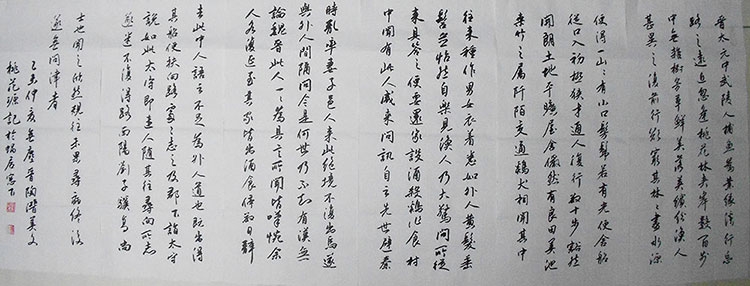 晉太元中武陵人捕魚為業緣溪行忘
路之遠近忽逢桃花林夾岸數百步
中無雜樹芳草鮮美落英繽紛漁人
甚異之復前行欲窮其林林盡水源
便得一山山有小口髣髴若有光便舍船
從口入初極狹才通人復行數十步豁然
開朗土地平曠屋舍儼然有良田美池
桑竹之屬阡陌交通鷄犬相聞其中
往來種作男女衣着悉如外人黃髮垂
髫並怡然自樂見漁人乃大驚問所從
來具答之便要還家設酒殺鷄作食村
中聞有此人咸來問訊自云先世避秦
時亂率妻子邑人來此絕境不復出焉遂
與外人間隔問今是何世乃不知有漢無
論魏晉此人一一為具言所聞皆嘆惋余
人各復延至其家皆出酒食停數日辭
去此中人語云不足為外人道也既出得
其船便扶向路處處志之及郡下詣太守
說如此太守即遣人隨其往尋向所志
遂迷不復得路南陽劉子驥高尚
士也聞之欣然規往未果尋病終後
遂無問津者
亥仲晉陶潛美文
桃花源記於蝸居寫下